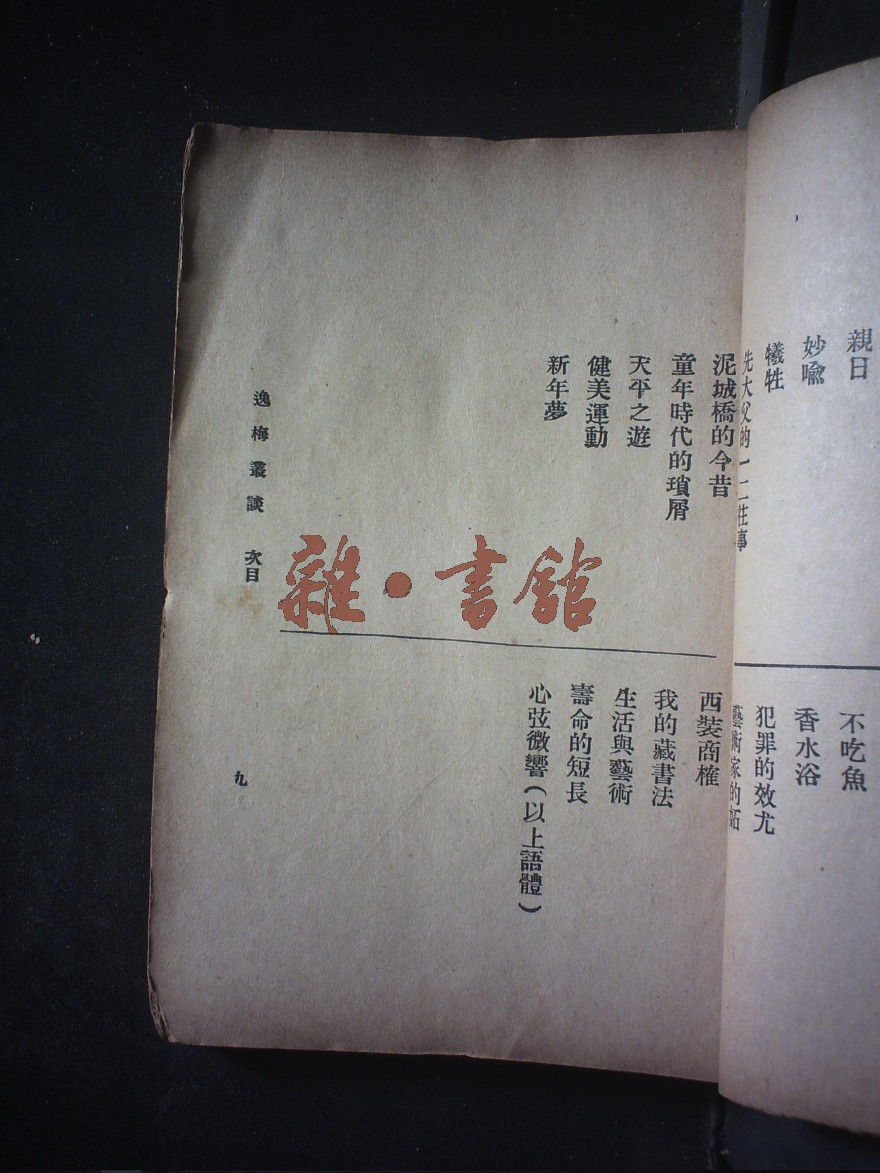 親日
妙喩
犧牲
先大父的一二往事
不吃魚
香水浴
犯罪的效尤
藝術家的
泥城橋的今昔
童年時代的瑣屑
天平之遊
健美運動
新年夢
西裝商榷
我的藏書法
生活與藝術
壽命的短長
心弦微響(以上語體)
逸梅叢談 次目
九
雜·書館